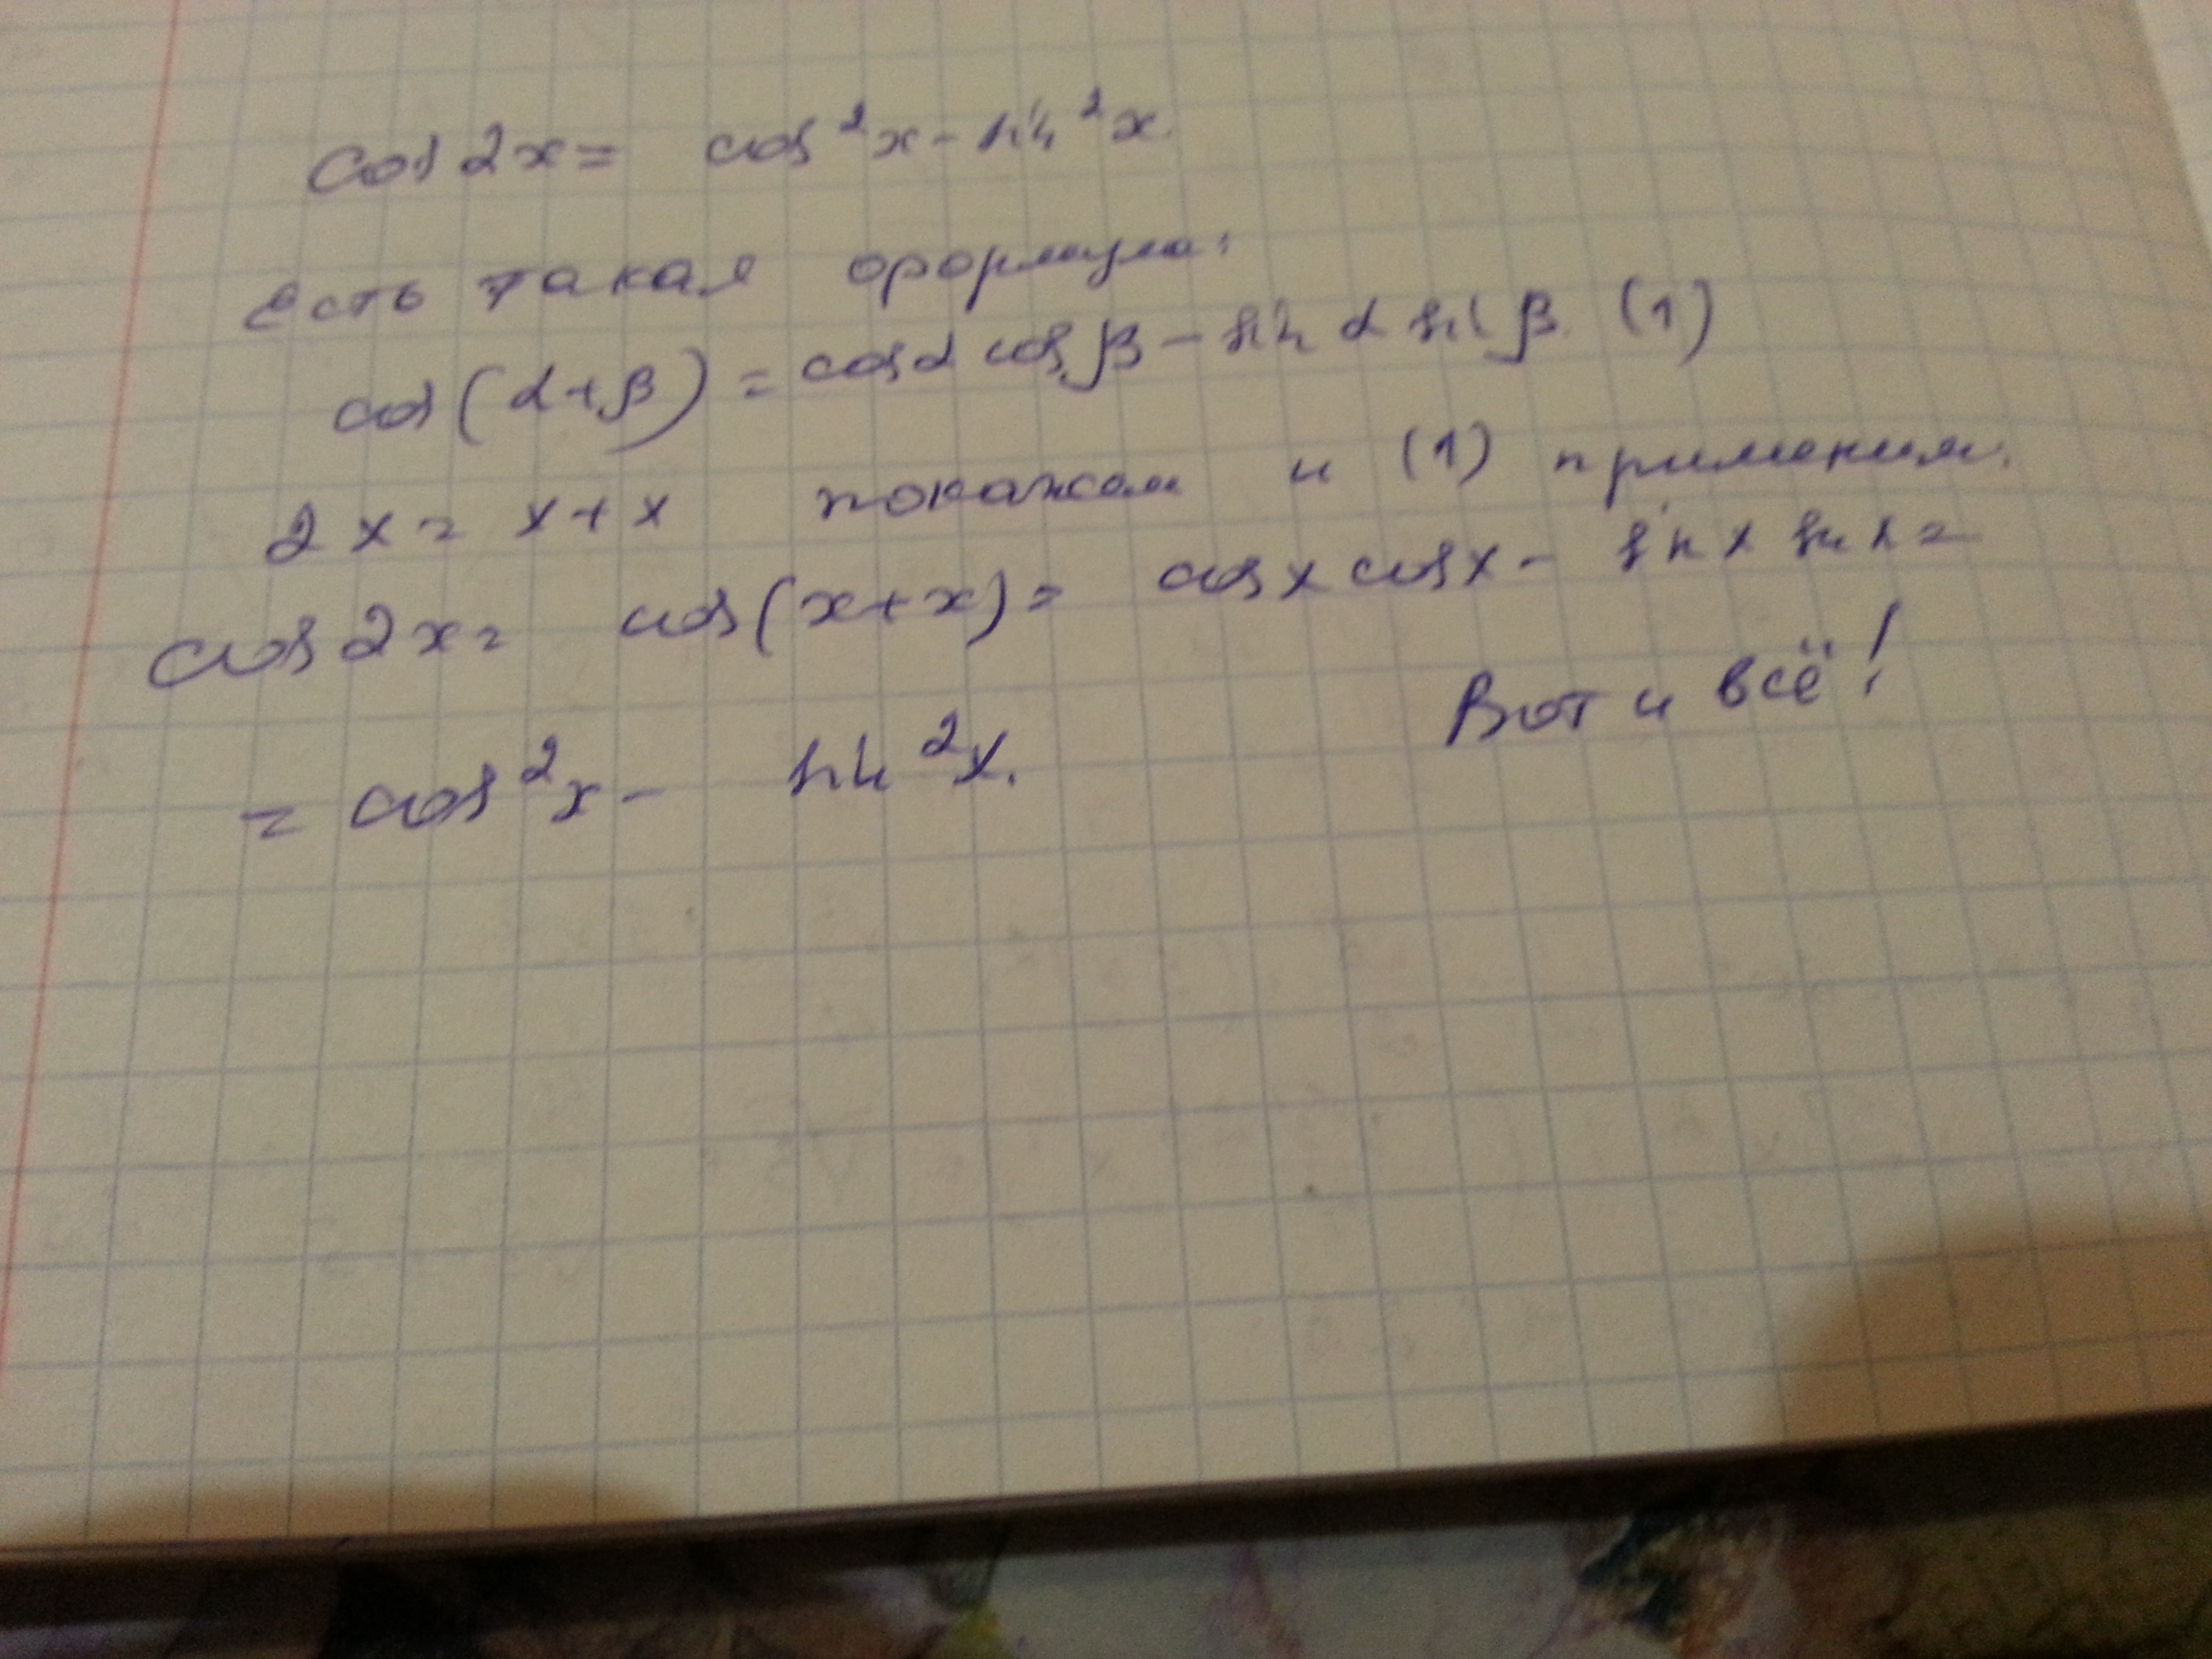 cos 2x = cos²x - sin²x.
Есть такая формула:
cos(α+β) = cosα cosβ - sin α sin β. (1)
2x = x + x покажем и (1) применим.
cos 2x = cos(x+x) = cosx cosx - sin x sin x =
= cos²x - sin²x. Вот и всё!